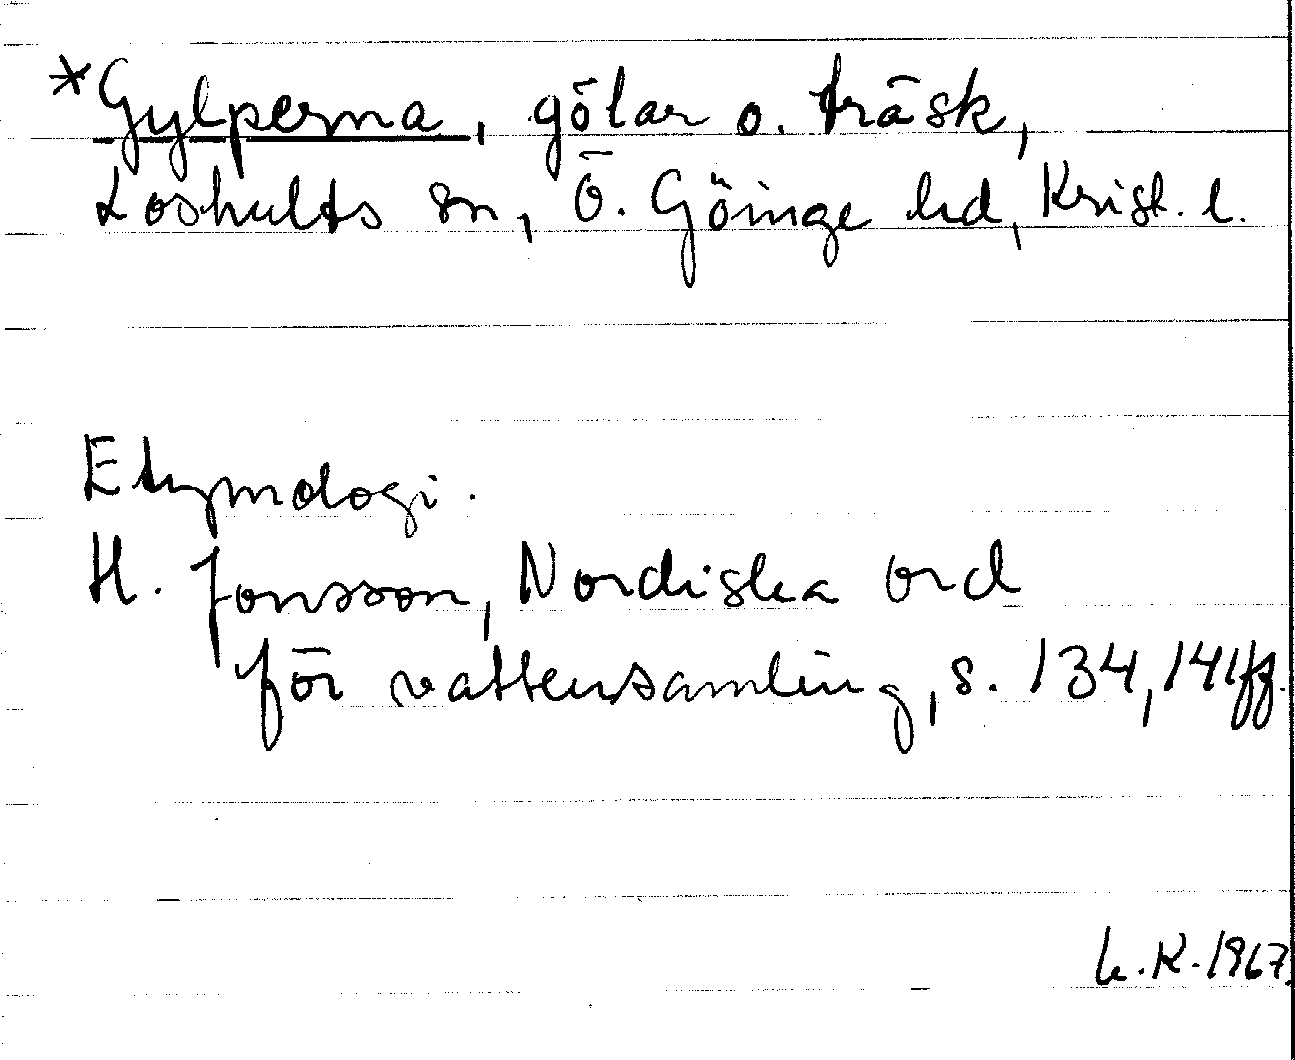 *Gylperna, gölar o. träsk,
Loshults sn, Ö. Göinge hd, Krist. l.
Etymologi.
H. Jonsson, Nordiska ord
för vattensamling, s. 134, 141ff.
L.K. 1967.